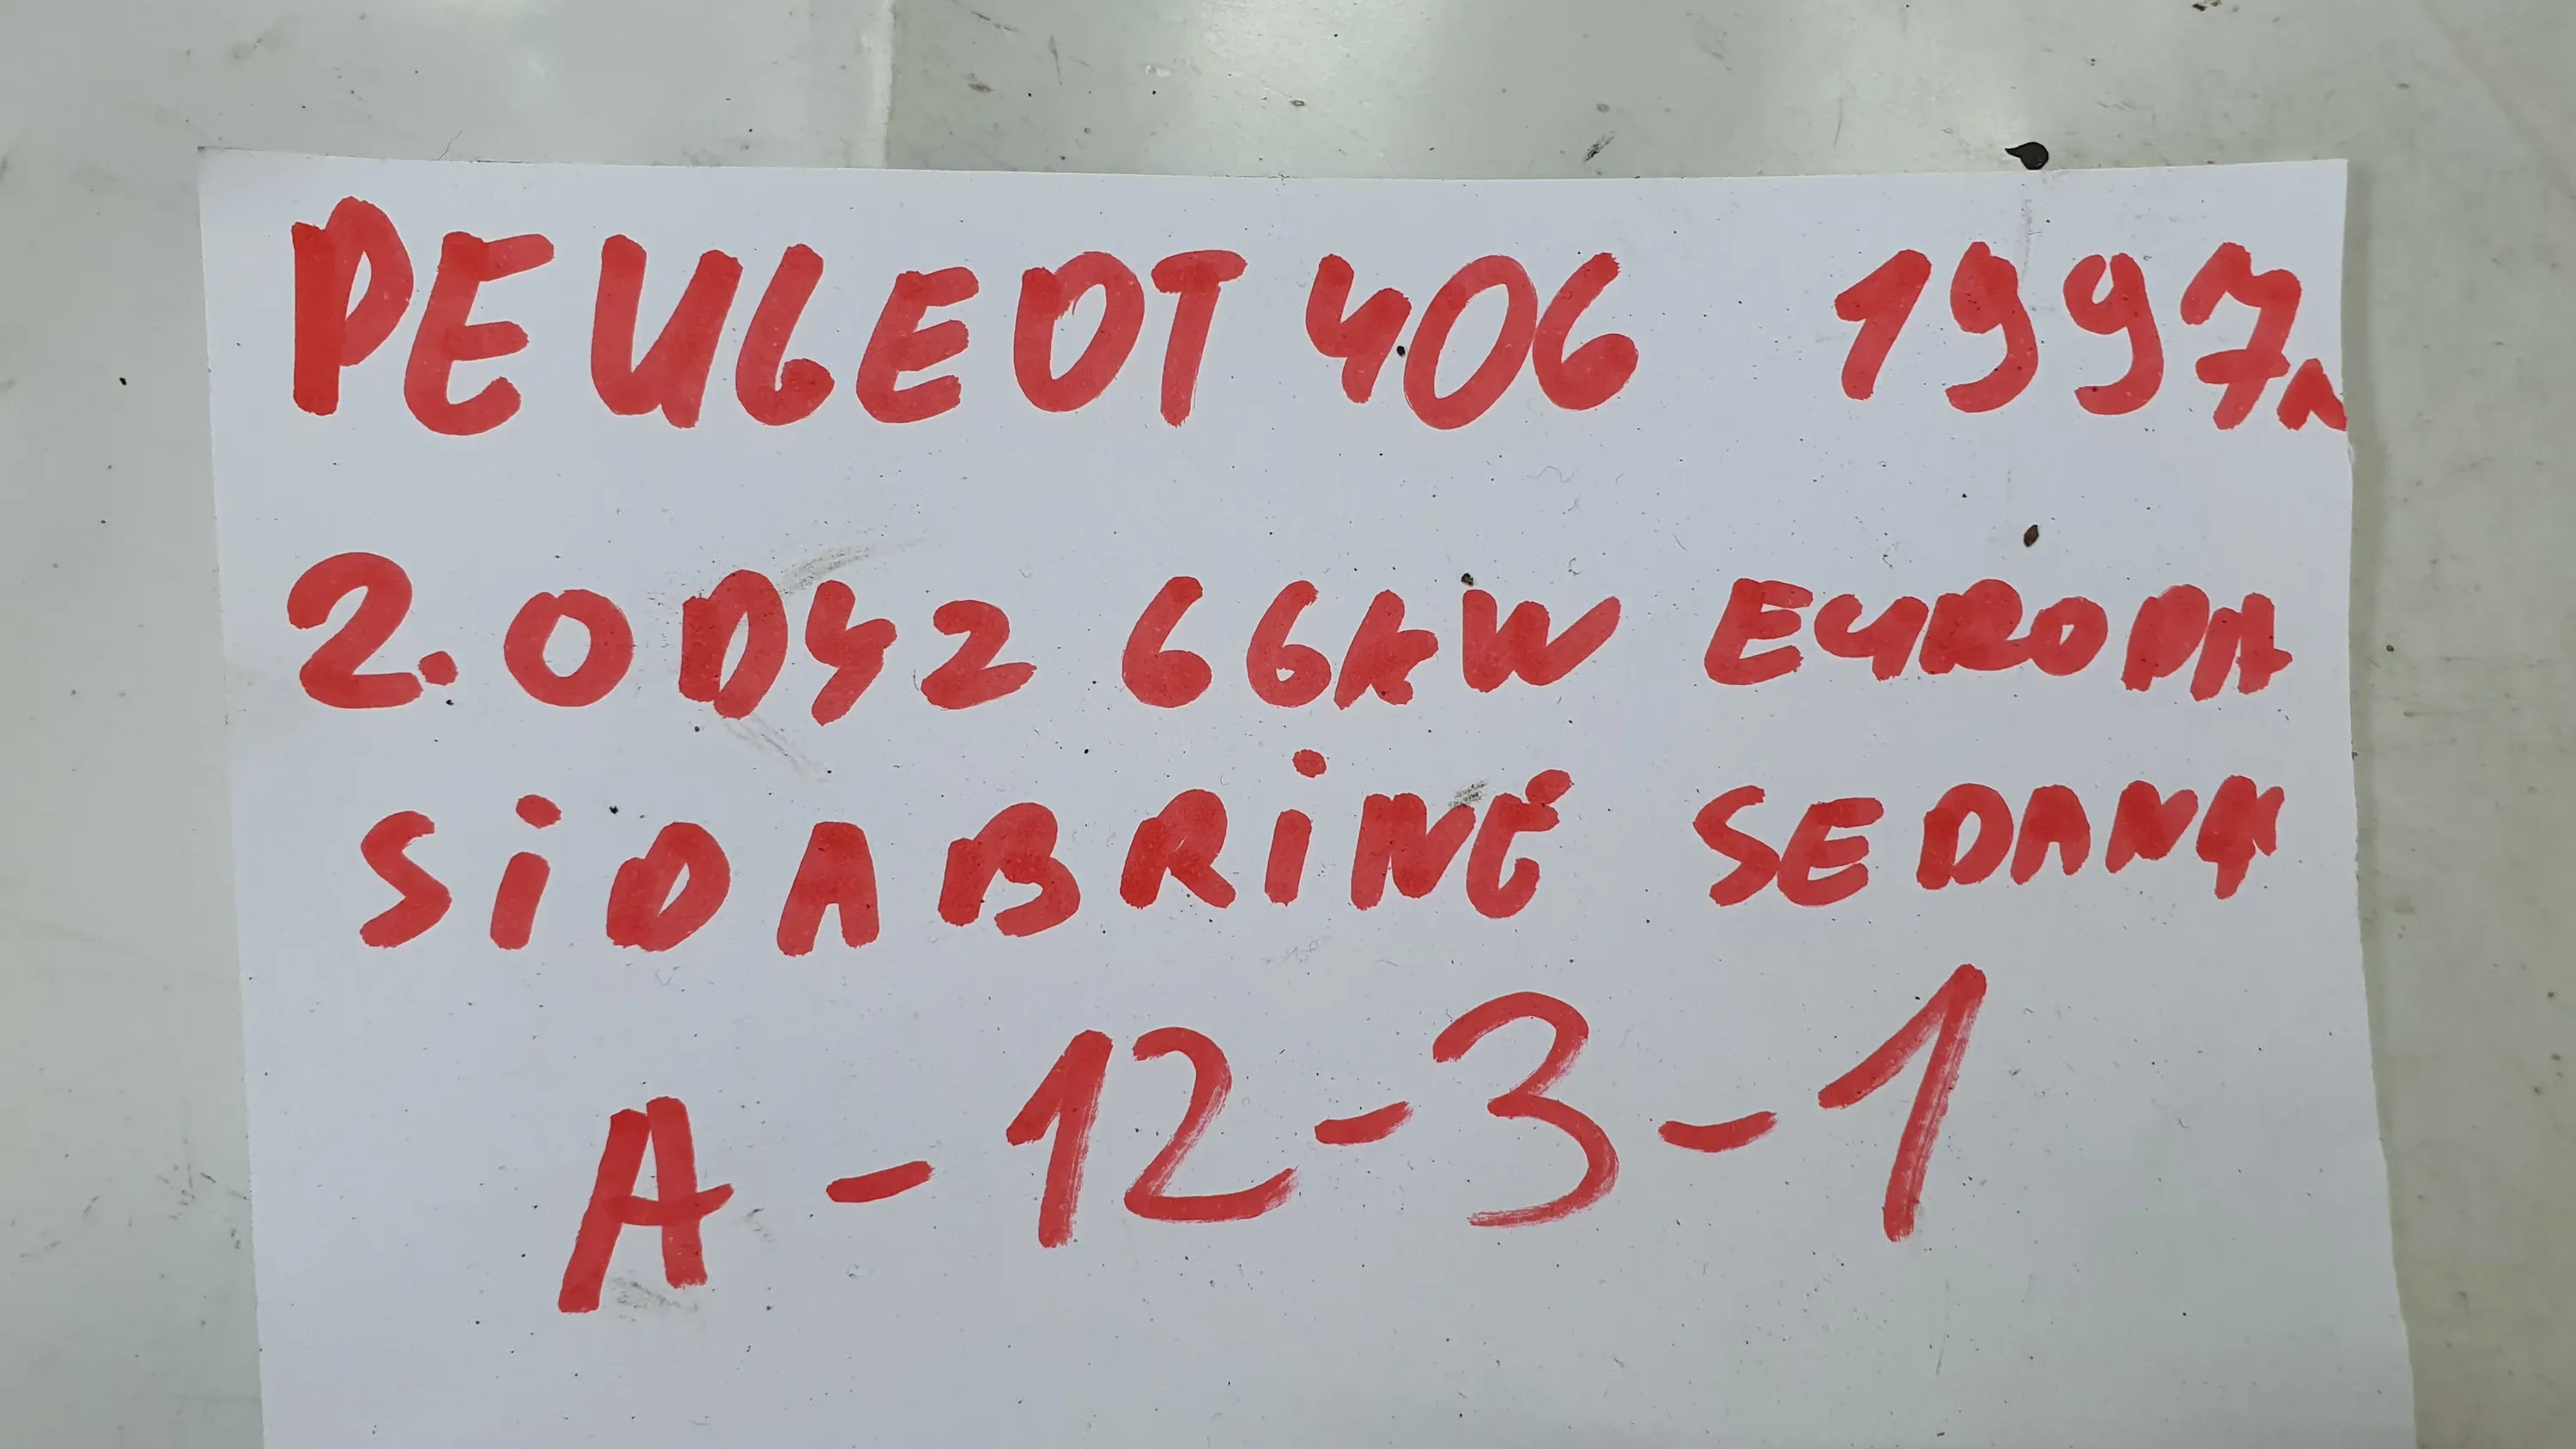 PEUGEOT 406 1997m
2.0 Dyz 66kW EUROPA
SiDABRiNĖ SEDANA
A-12-3-1